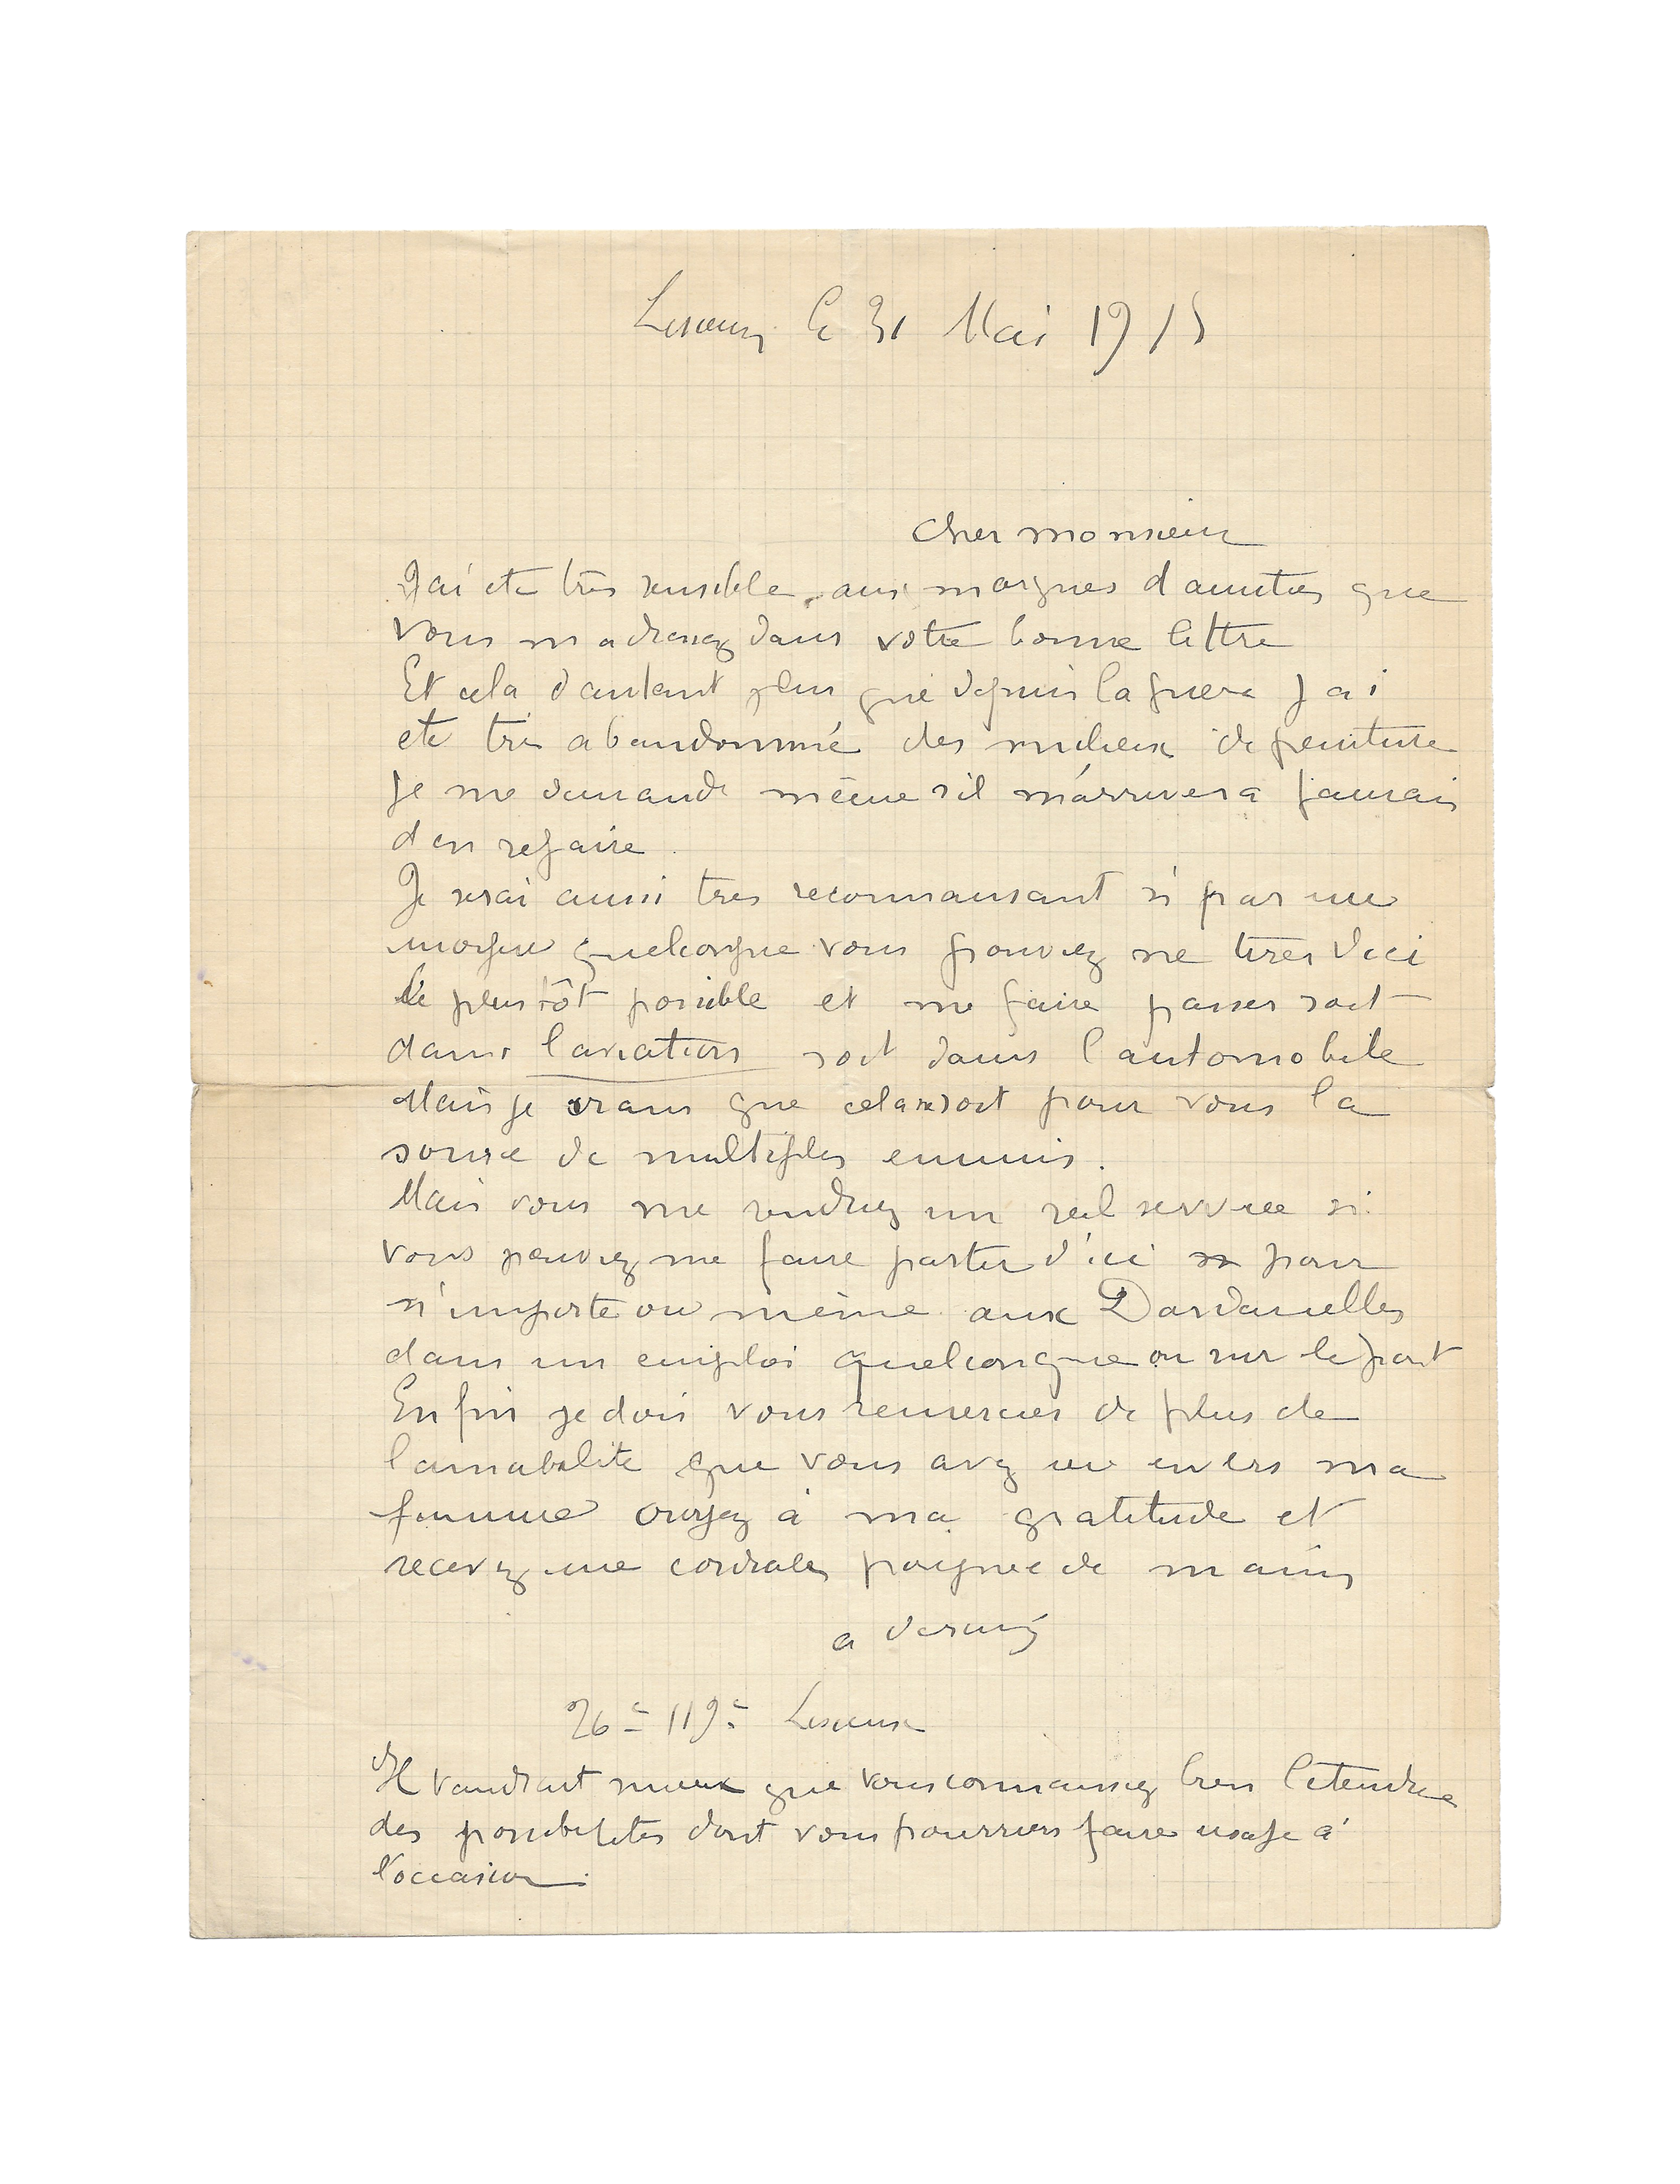 Lisieux le 31 Mai 1915
Cher monsieur
J'ai ete très sensible aux marques d amities que
vous m adressez dans votre bonne lettre
Et cela d autant plus que depuis la guere j ai
ete très abandonnné des milieux de peinture
je me demande même s'il m'arrivera jamais
d en refaire.
Je serai aussi tres reconnaisant si par un
moyen quelconque vous pouviez me tirer d ici
le plus tôt possible et me faire passer soit
dans l aviation soit dans l automobile
Mais je crains que cela ne soit pour vous la
source de multiples ennuis.
Mais vous me rendriez un réel service si
vous pouviez me faire partir d'ici pour
n'importe ou même aux Dardanelles
dans un emploi quelconque ou sur le front
Enfin je dois vous remercier de plus de
l amabilite que vous avez eu envers ma
femme croyez à ma gratitude et
recevez une cordiale poignee de mains
a derain
26e 119e Lisieux
Il vaudrait mieux que vous connaissiez bien l étendue
des possibilites dont vous pourriez faire usage à
l'occasion.